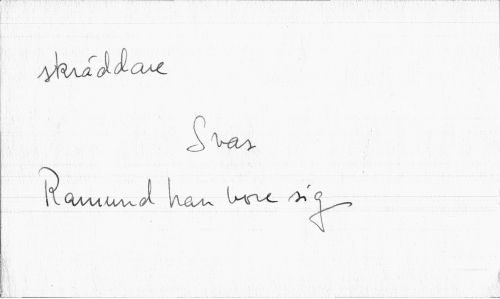 skräddare
Svas
Ramund han vore sig